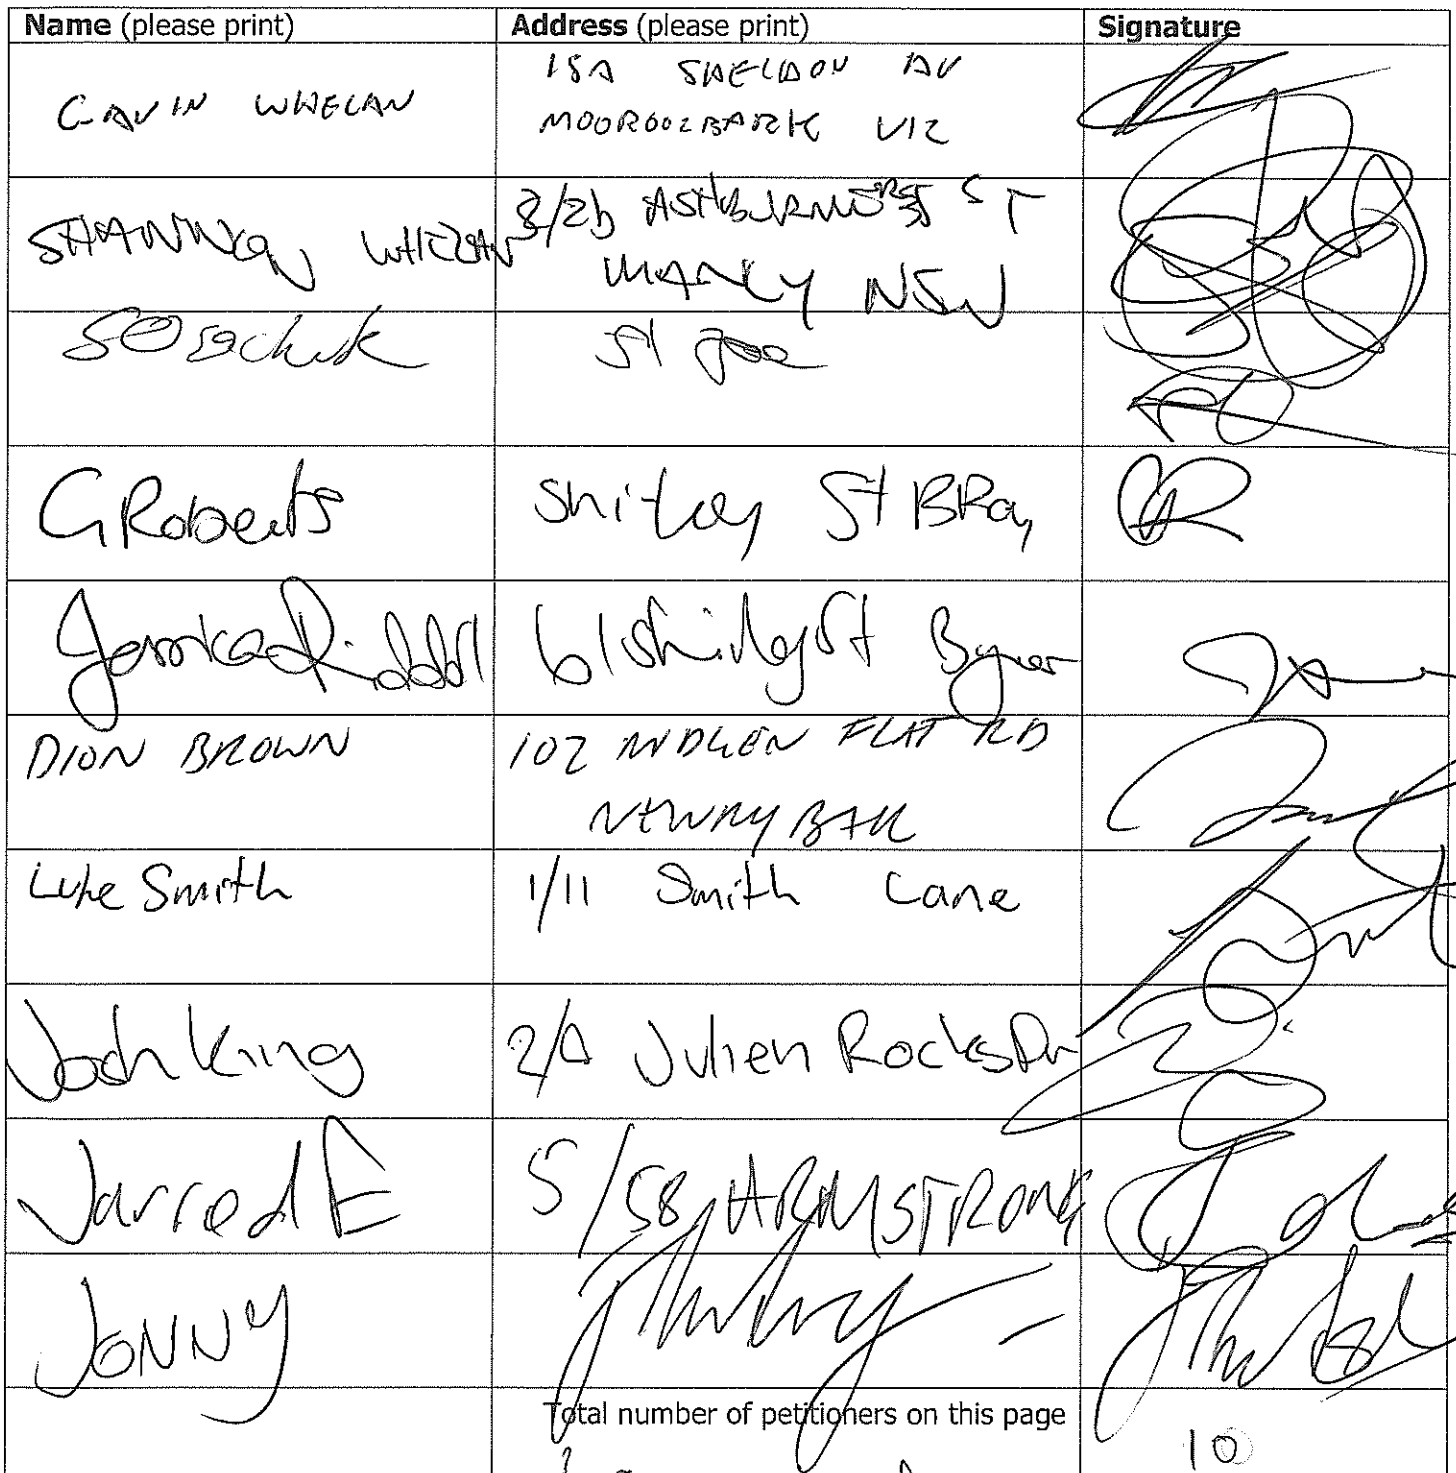 Name (please print) Address (please print) Signature
GAVIN WHELAN 15A SHELDON AV
MOOROOLBARK VIC
SHANNON WHELAN ST
MANLY NSW
G Roberts Shirley St BBay
Jessica Riddell 61 Shirley St Byron
DION BROWN 102 MIDGEN FLAT RD
NEWRYBAR
Luke Smith 1/11 Smith Lane
Josh King 2/A Julien Rocks Dr
Jarred E 5/58 ARMSTRONG
JONNY
Total number of petitioners on this page
10